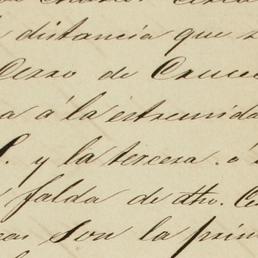 distancia que s
Cerro de Cruce
a á la estremida
S. y la tercera. á
falda de dho. Ce
son la prin